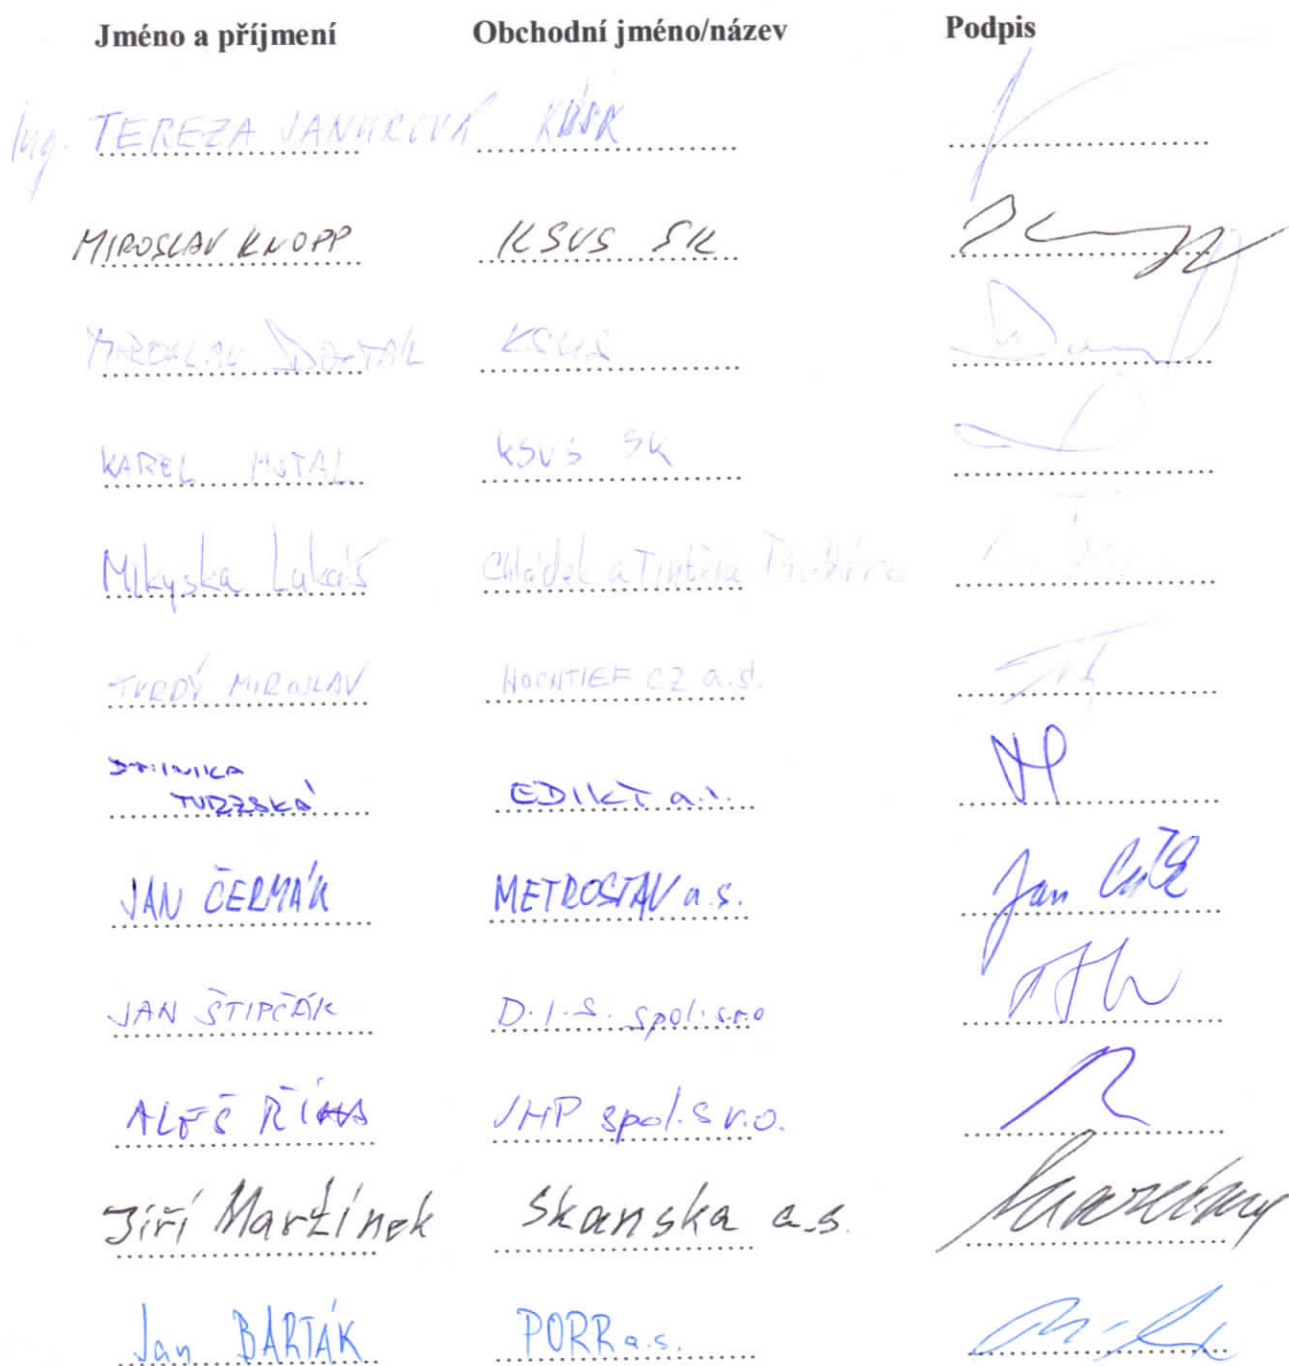 Jméno a příjmení Obchodní jméno/název Podpis
Ing. TEREZA
MIROSLAV KNOPP KSUS SK
KSUS
KAREL KSUS SK
Mikyska Lukáš Chládek a Tintěra
TVRDÝ MIROSLAV HOCHTIEF CZ a.s.
EDIKT a.s.
JAN ČERMÁK METROSTAV a.s. Jan
JAN ŠTIPČÁK D.I.S. spol. s.r.o
ALEŠ ŘÍHA JHP spol. s r.o.
Jiří Martínek Skanska a.s.
Jan BARTÁK PORR a.s.